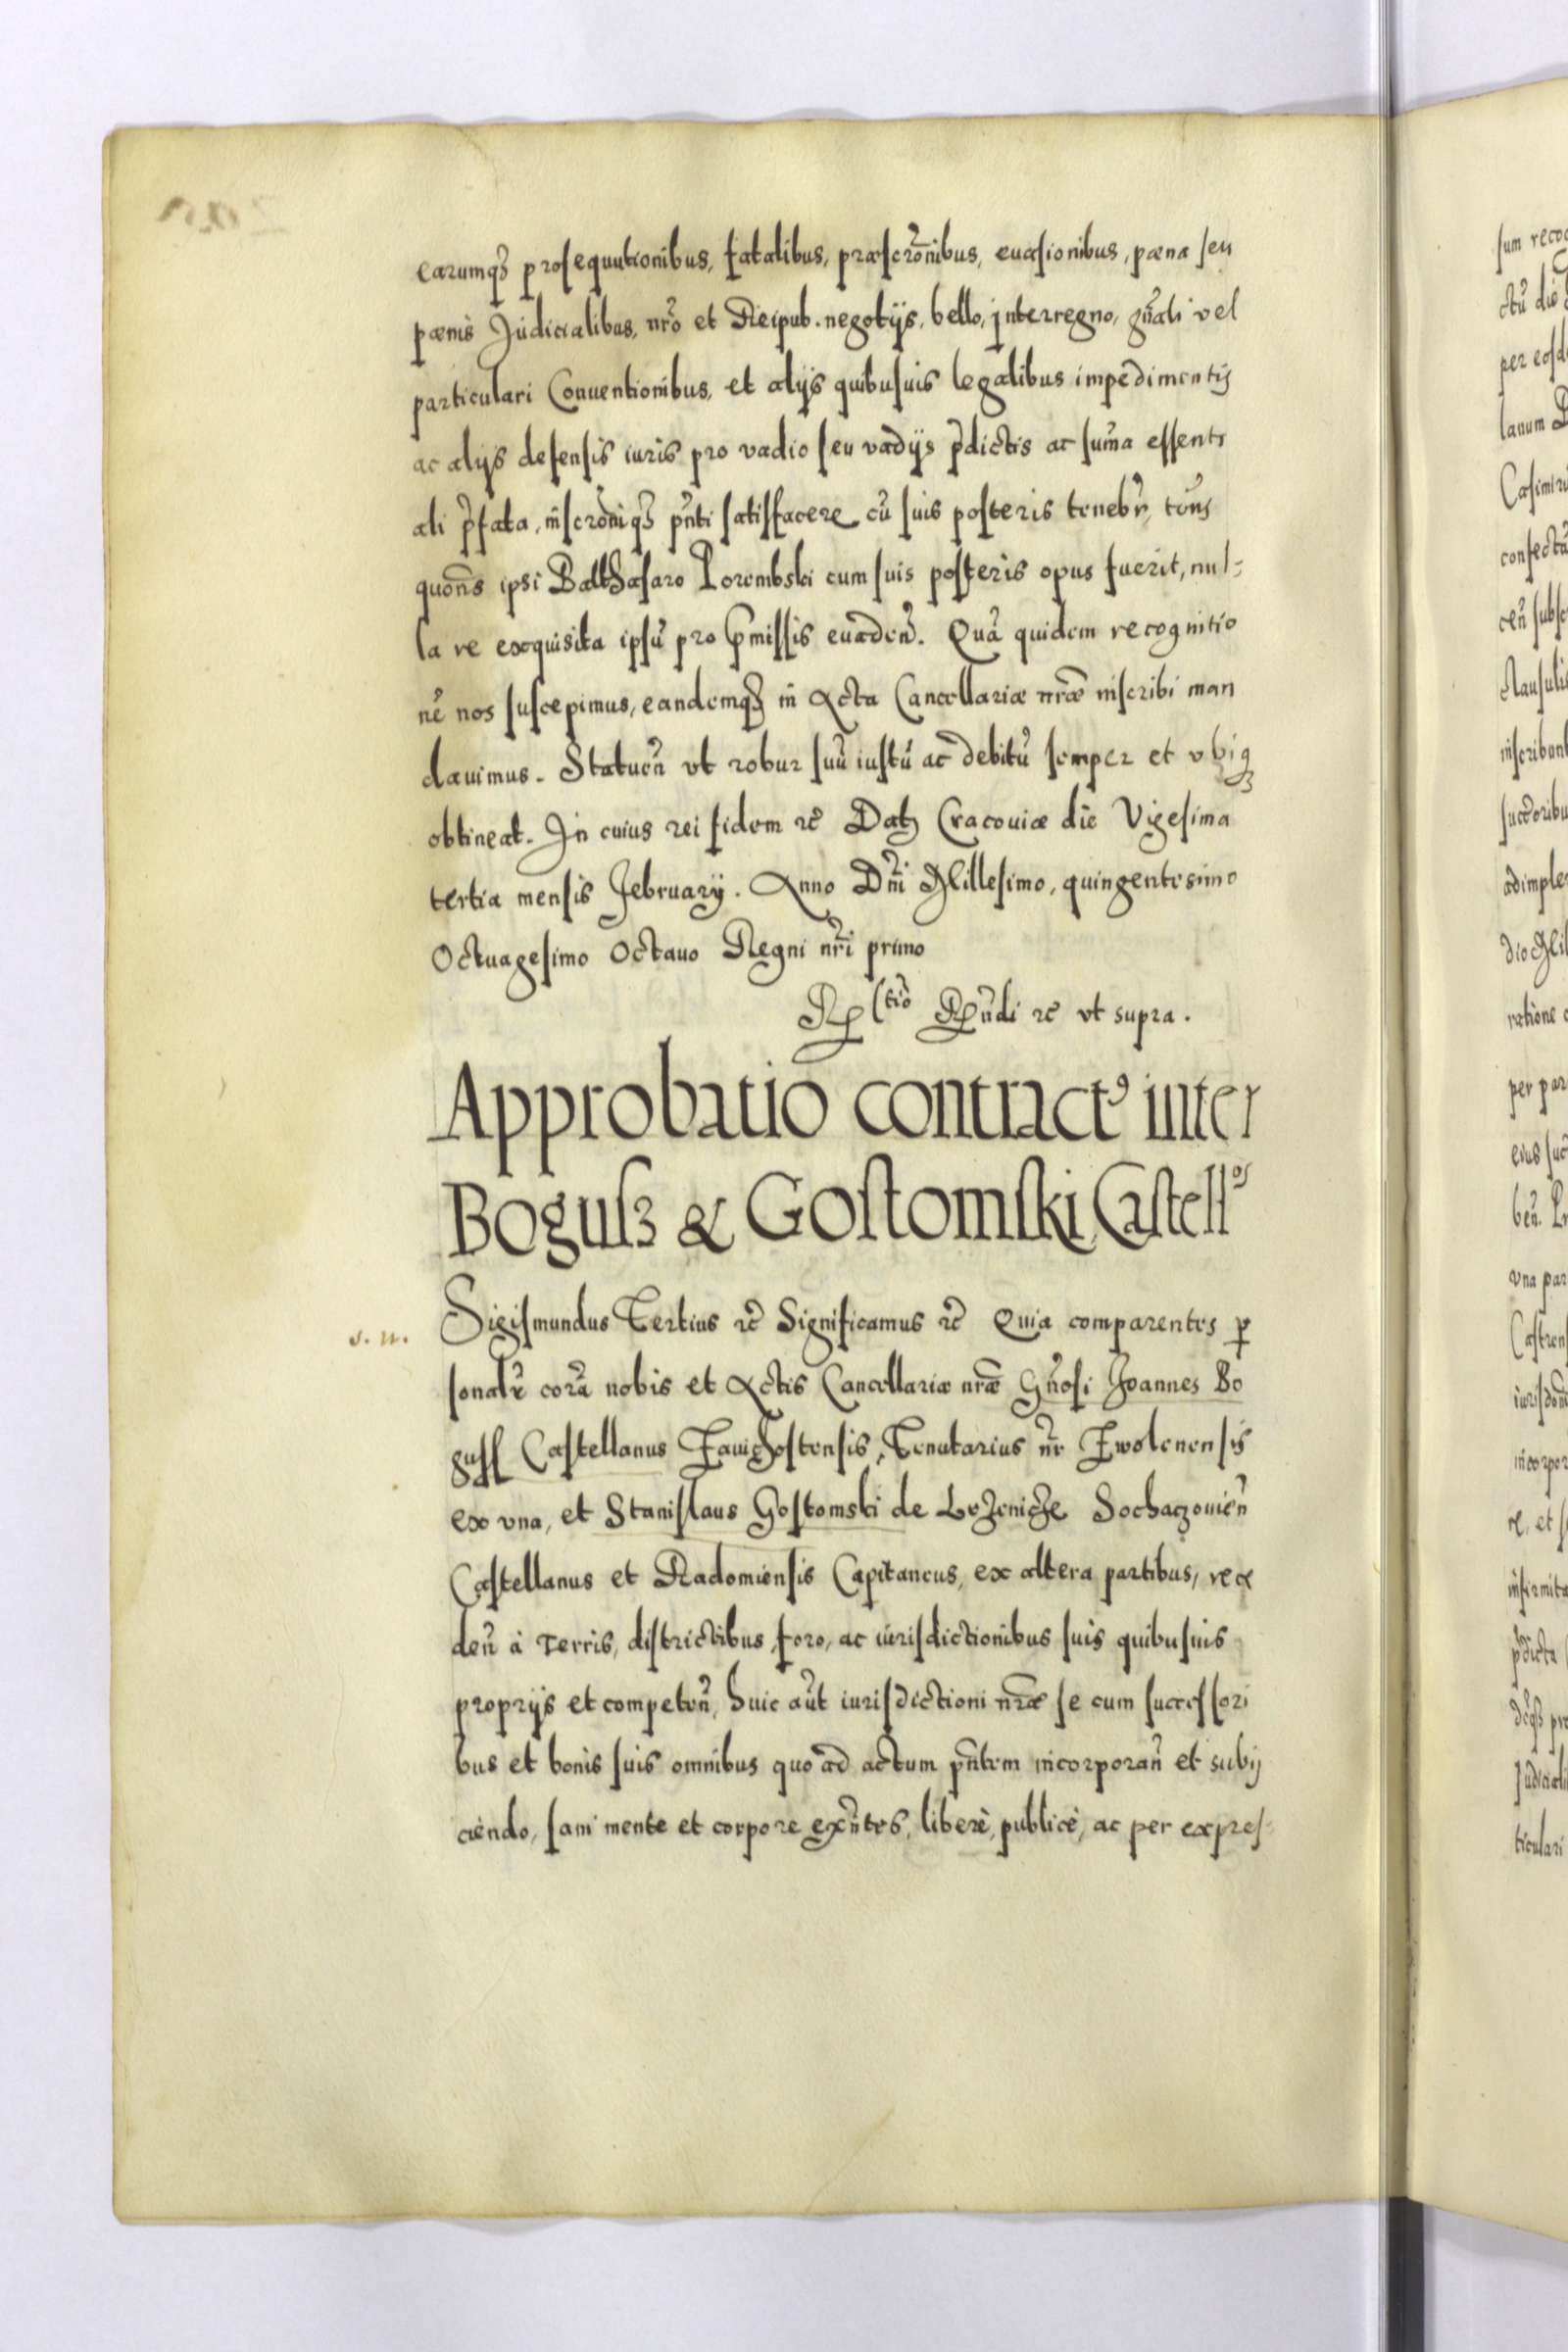 earumq̃ prosequutionibus, fatalibus, præscrõnibus, euasionibus, pæna seu
pænis Judicialibus, nrõ et Reipub. negotijs, bello, interregno, gñali vel
particulari Conuentionibus, et alijs quibusuis legalibus impedimentis
ac alijs defensis iuris pro vadio seu vadijs p̃dictis ac sum̃a essenti
ali p̃fata, inscrõniq̃ pñti satisfacere cũ suis posteris tenebr̃, toñs
quoñs ipsi Balthasaro Porembski cum suis posteris opus fuerit, nul-
la re exquisita ipsũ pro p̃missis euadeñ. Quã quidem recognitio
nẽ nos suscepimus, eandemq̃ in Acta Cancellariæ nræ̃ inscribi man
dauimus. Statueñ vt robur suũ iustũ ac debitũ semper et vbiq̃
obtineat. In cuius rei fidem rc̃ Datz Cracouiæ die Vigesima
tertia mensis February. Anno Dñi Millesimo, quingentesimo
Octuagesimo Octauo Regni nrĩ primo
Rñdi rc̃ vt supra.
Approbatio contractꝰ inter
Bogusz & Gostomski Castellos
s. n.
Sigismundus Tertius rc̃ Significamus rc̃ Quia comparentes p̱
sonalr̃ corã nobis et Actis Cancellariæ nræ̃ Gñosi Joannes Bo
guss Castellanus Zauichostensis, Tenutarius nr̃ Zwolenensis
ex vna, et Stanislaus Gostomski de Lezenicze Sochaczouieñ
Castellanus et Radomiensis Capitaneus, ex altera partibus, rece
deñ à Terris, districtibus foro, ac iurisdictionibus suis quibusuis
proprijs et competeñ, huic aũt iurisdictioni nræ̃ se cum successori
bus et bonis suis omnibus quo ad actum pñtem incorporañ et subij
ciendo, sani mente et corpore exñtes, liberè, publicè, ac per expres-